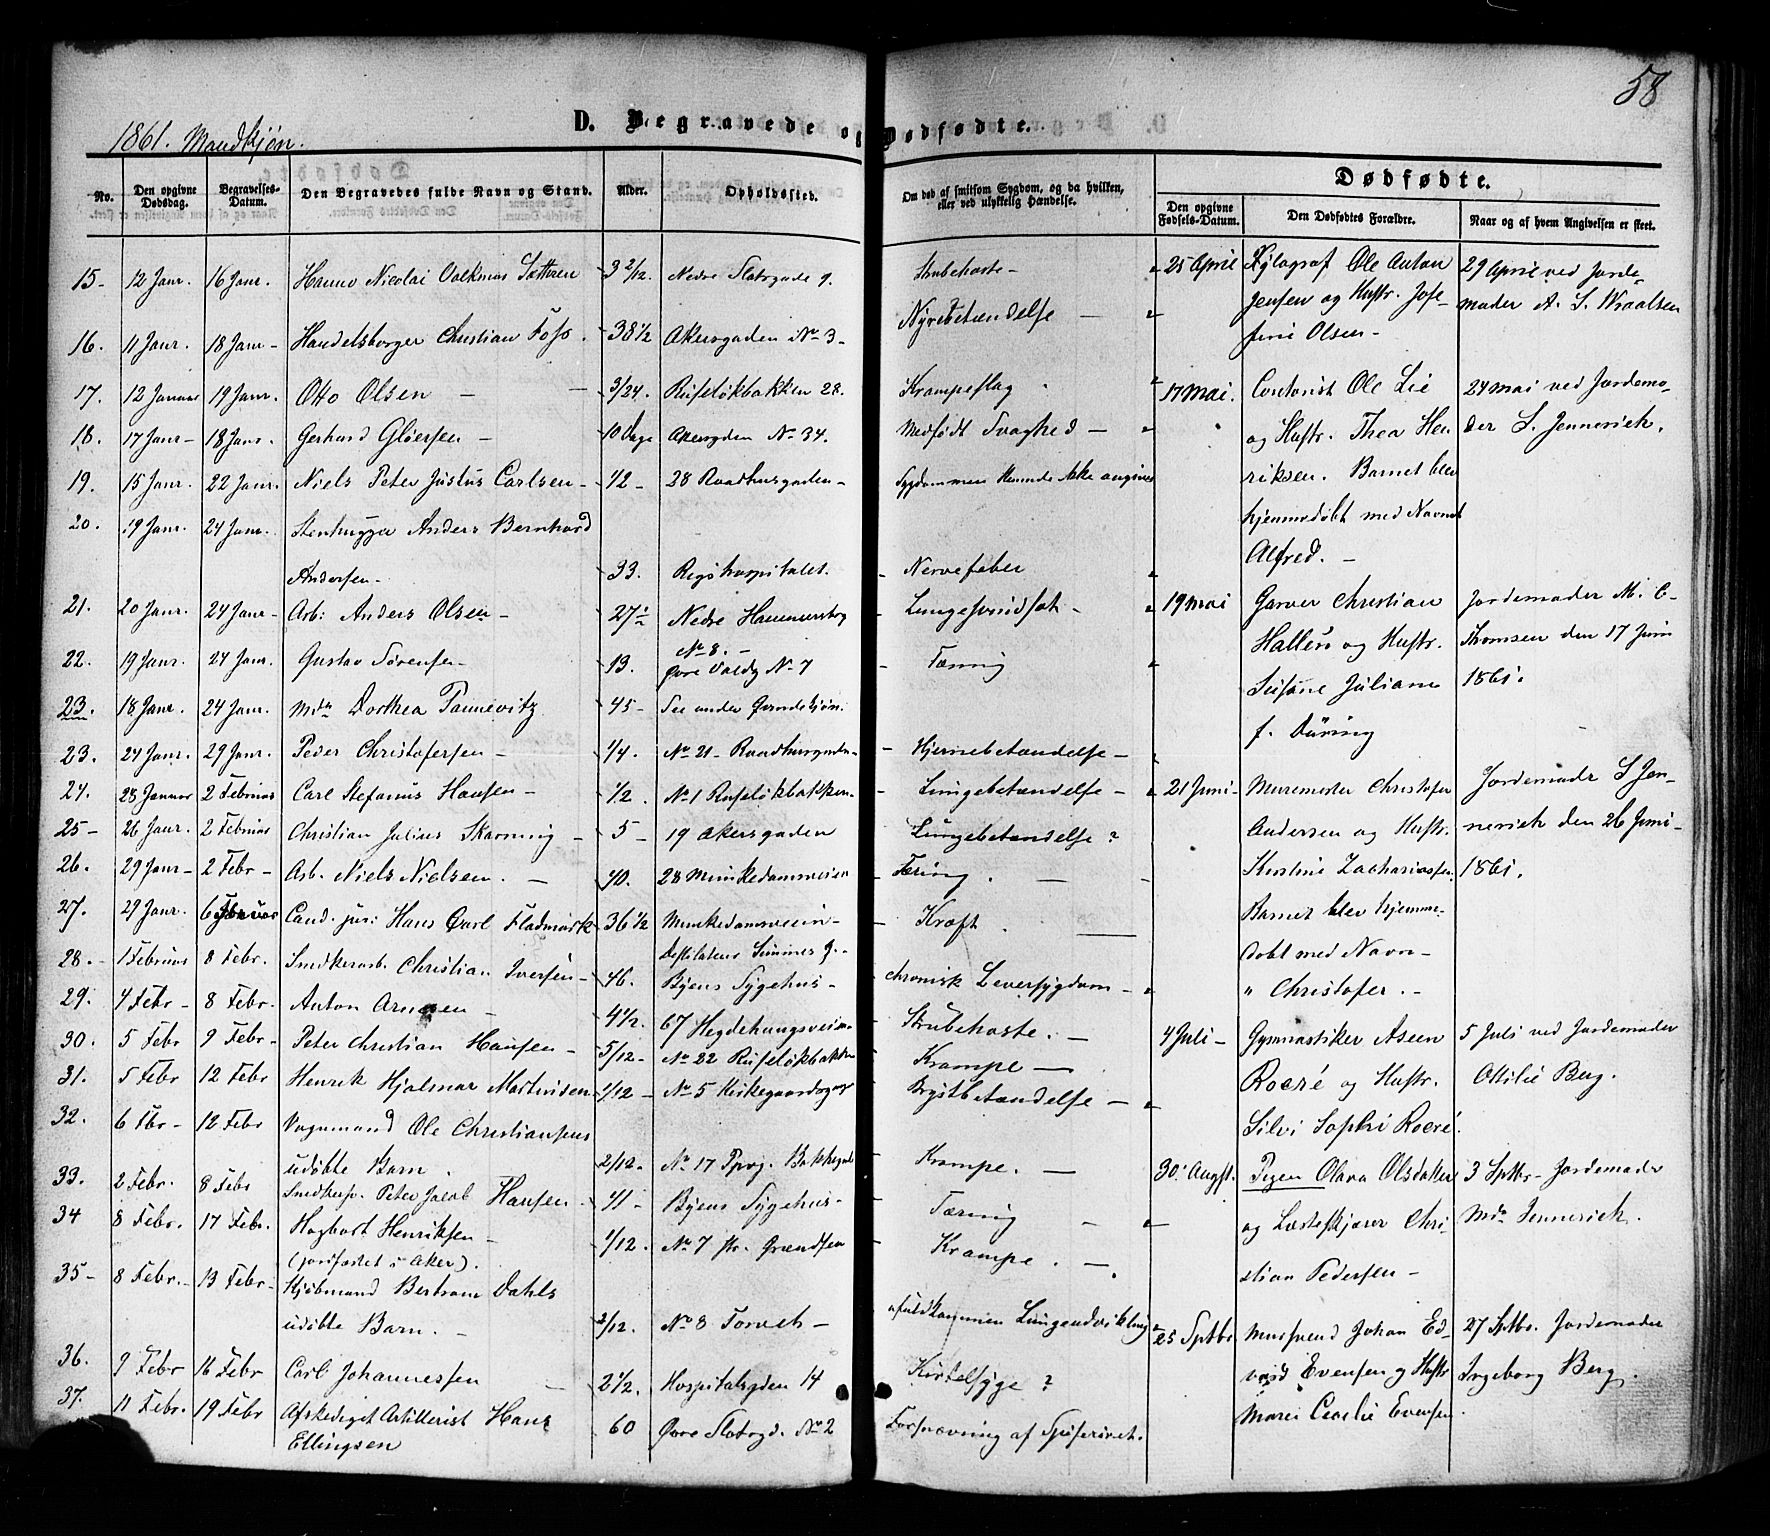 58
D. Begravede og Dødfødte.
1861. Mandkjøn.
No. | Den opgivne Dødsdag. | Begravelses-Datum. | Den Begravedes fulde Navn og Stand. | Alder. | Opholdssted. | Om død af smitsom Sygdom, og da hvilken, eller ved ulykkelig Hændelse.
15- | 12 Janr. | 16 Janr. | Hanno Nicolai | 3 2/12. | Nedre Slotsgade 9. | Strubehoste -
16. | 11 Janr. | 18 Janr - | Handelsborger Christian Foss. | 38 1/2 | Akersgaden No 3- | Nyrebetændelse -
17. | 12 Januar | 19 Janr. | Otto Olsen - | 3/24. | Rufseløkbakken 28. | Krampeslag
18. | 17 Janr- | 18 Janr. | Gerhard Gløersen - | 10 Dage | Akersgden No 34. | Medfødt Svaghed -
19. | 15 Janr. | 22 Janr. | Niels Peter Justus Carlsen- | 1/2 - | 28 Raadhusgaden- | Sygdommen kunde ikke angives
20. | 19 Janr. | 24 Janr. | Stenhugger Anders Bernhard
Andersen- | 33. | Rigshospitalet. | Nervefeber
21. | 20 Janr. | 24 Janr- | Arb: Anders Olsen - | 27 1/2 | Nedre Hammersborg
No 8. - | Lungesvindsot -
22. | 19 Janr. | 24 Janr. | Gustav Sørensen - | 13. | Øvre Voldg No 7 | Tæring
23. | 18 Janr. | 24 Janr. | Mda Dorthea Pannevitz | 45- | See under Qvindekjøn.
23. | 24 Janr. | 29 Janr. | Peder Christofersen - | 1/4. | No 21- Raadhusgaden- | Hjernebetændelse -
24. | 28 Januar | 2 Februar | Carl Stefanus Hansen - | 1/2. | No 1 Rufseløkbakken- | Lungebetændelse -
25- | 26 Janr. | 2 Februar | Christian Julius Skarning - | 5- | 19 Akersgaden | Lungebetændelse ?
26. | 29 Janr- | 2 Febr - | Arb. Niels Nielsen. - | 40. | 28 Munkedamsveien | Tæring. -
27. | 29 Janr. | 6 Februar | Cand. jur: Hans Carl Fladmark | 36 1/2 | Munkedamsveien-
Destilateur | Kræft.
28.- | 1 Februar | 8 Febr. | Smedkerarb. Christian Iversen- | 46. | Byens Sygehus- | chronisk Leversygdom -
29. | 4 Febr- | 8 Febr. | Anton Arnesen - | 4 1/2. | 67 Hegdehaugsveien- | Strubehoste. -
30. | 5 Febr | 9 Febr- | Peter Christian Hansen - | 5/12- | No 22 Rufseløkbakken | Krampe -
31. | 5 Febr | 12 Febr | Henrik Hjalmar Martinsen | 1/12 - | No 5 Kirkegaardsg | Brystbetændelse -
32. | 6 Fbr - | 12 Febr | Vognmand Ole Christiansens
udøbte Barn. | 2/12- | No 17 | Krampe. -
33. | 2 Febr. | 8 Febr | Peter Jacob Hansen. | 41- | Byens Sygehus- | Tæring -
34 | 8 Febr. | 17 Febr. | Hagbart Henriksen -
(jordfæstet i Aker). | 1/12. | No 7 Pr. Grændsen | Krampe. -
35- | 8 Febr.- | 13 Febr- | Kjøbmand Bertram Dahls
udøbte Barn. - | 2/12. | No 8 Torvet- | ufuldkommen Lungeudvikling
36. | 9 Febr | 16 Febr | Carl Johannessen - | 2 1/2. | Hospitalsgden 14 | Kirtelsyge ?
37. | 11 Febr. | 19 Febr | Afskediget Artillerist Hans
Ellingsen | 60 | Øvre Slotsgd. No 2 | Forsnævring af Spiserøret.
Dødfødte.
Den opgivne Fødsels-Datum. | Den Dødfødtes Forældre. | Naar og af hvem Angivelsen er skeet.
25 April | Xylograf Ole Anton | 29 April ved Jorde-
Jensen og Hustr. Jose- | moder A. S. Wraalsen
fine Olsen-
17 Mai. | Contorist Ole Lie | 24 Mai ved Jordemo-
og Hustr. Thea Hen | der S. Jennerich.
riksen. Barnet blev
hjemmedøbt med Navnet
Alfred. -
19 Mai | Garver Christian | Jordemoder M. C-
og Hustr. | Thomsen den 17 Juni
Susane Juliane | 1861.
f. Düring
21 Juni- | Murmester Christofer | Jordemodr S Jen-
Andersen og Hustr. | nerich den 26 Juni-
Kirstine Zachariassen. | 1861.
Barnet blev hjemme-
døbt med Navn-
" Christofer. -
4 Juli- | Gymnastiker Aseen | 5 Juli ved Jordemoder
Rocré og Hustr. | Ottilie Berg.
Silvi Sophi Rocré.
30 Augst. | Pigen Olava Olsdatter | 3 Sptbr- Jordemoder
og Læsteskjærer Chri | Md. Jennerich.
stian Pedersen -
25 Sptbr | Mursvend Johan Ed- | 27 Sptbr. Jordemoder
vard Evensen og Hustr | Ingeborg Berg.
Maren Cecilie Evensen.